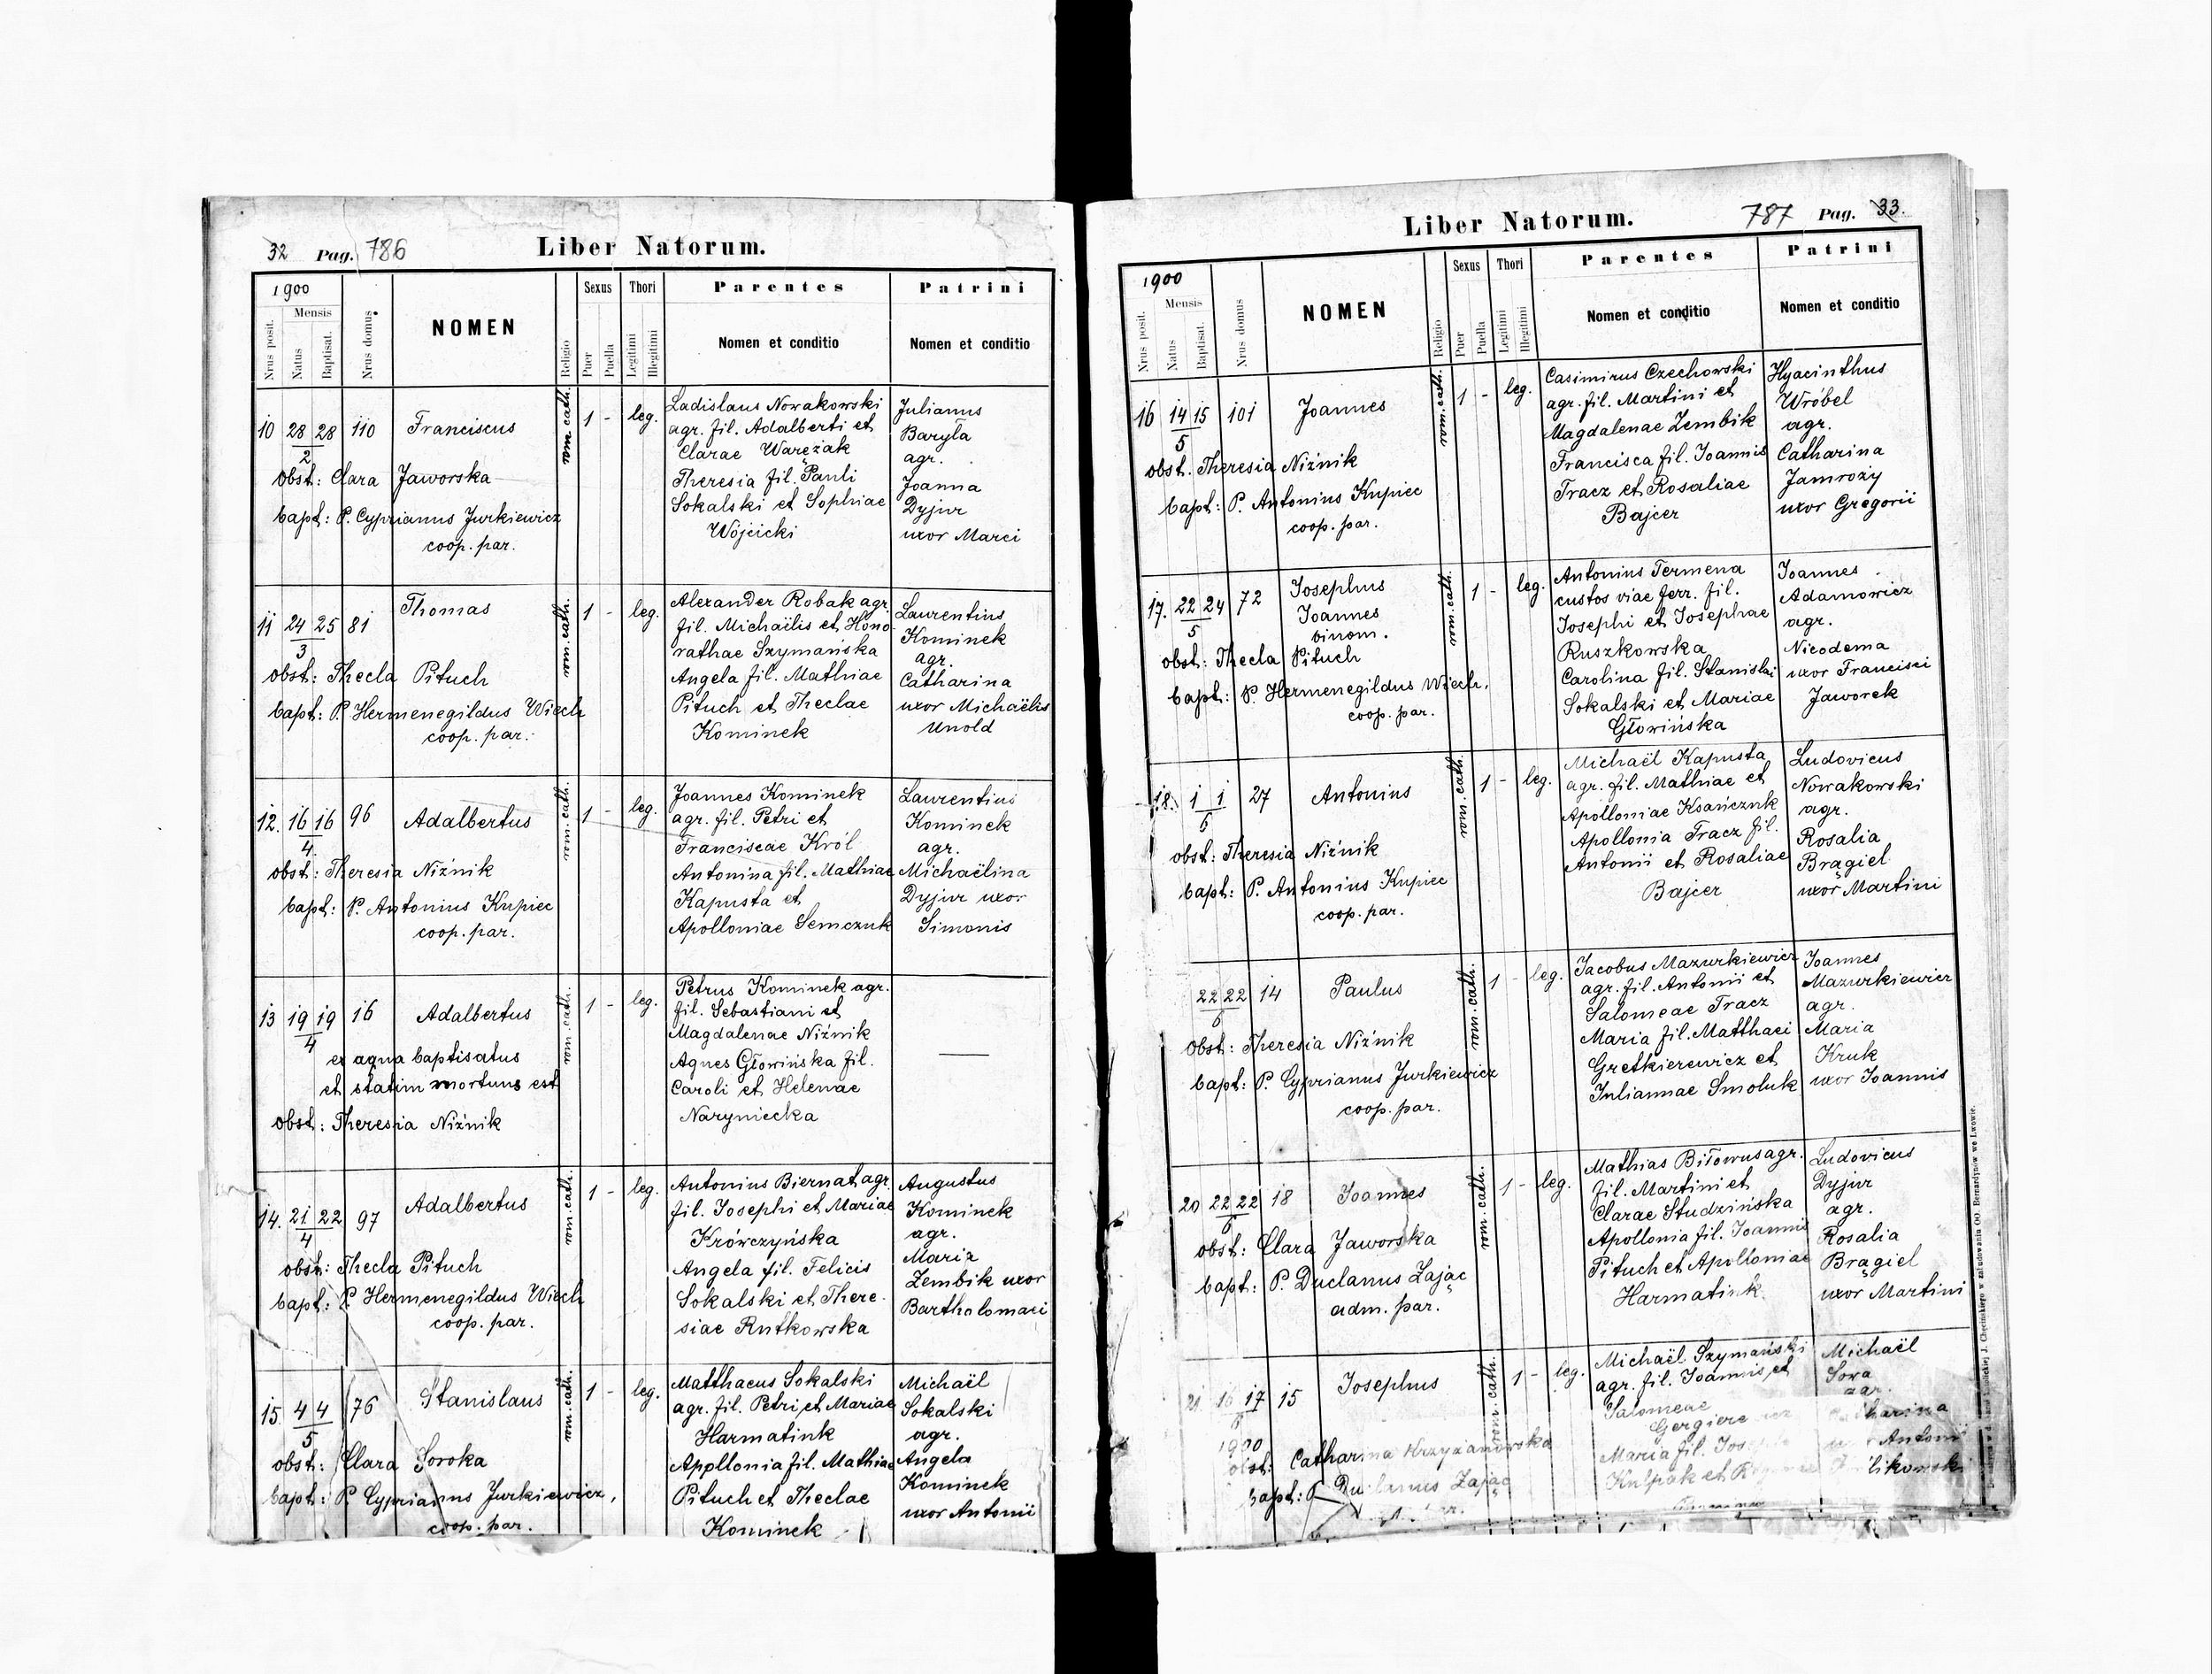 32 Pag. 786 Liber Natorum.
1900
Nrus posit.
Mensis
Natus
Baptisat.
Nrus domus
NOMEN
Religio
Sexus
Puer
Puella
Thori
Legitimi
Illegitimi
Parentes
Nomen et conditio
Patrini
Nomen et conditio
10 28 28 110 Franciscus rom. cath. 1 - leg.
2
obst: Clara Jaworska
bapt: P. Cyprianus Jurkiewicz
coop. par.
Ladislaus Nowakowski
agr. fil. Adalberti et
Clarae Waręzak
Theresia fil. Pauli
Sokalski et Sophiae
Wójcicki
Julianus
Baryła
agr.
Joanna
Dyjur
uxor Marci
11 24 25 81 Thomas rom. cath. 1 - leg.
3
obst: Thecla Pituch
bapt: P. Hermenegildus Wiech
coop. par.
Alexander Robak agr.
fil. Michaëlis et Hono-
rathae Szymańska
Angela fil. Mathiae
Pituch et Theclae
Kominek
Laurentius
Kominek
agr.
Catharina
uxor Michaëlis
Unold
12. 16 16 96 Adalbertus rom. cath. 1 - leg.
4.
obst: Theresia Niźnik
bapt: P. Antonius Kupiec
coop. par.
Joannes Kominek
agr. fil. Petri et
Franciscae Król
Antonina fil. Mathiae
Kapusta et
Apolloniae Semczuk
Laurentius
Kominek
agr.
Michaëlina
Dyjur uxor
Simonis
13 19 19 16 Adalbertus rom. cath. 1 - leg.
4
ex aqua baptisatus
et statim mortuus est
obst: Theresia Niźnik
Petrus Kominek agr.
fil. Sebastiani et
Magdalenae Niźnik
Agnes Głowińska fil.
Caroli et Helenae
Naryniecka
14. 21 22 97 Adalbertus rom. cath. 1 - leg.
4
obst: Thecla Pituch
bapt: P. Hermenegildus Wiech
coop. par.
Antonius Biernat agr.
fil. Josephi et Mariae
Krówczyńska
Angela fil. Felicis
Sokalski et There-
siae Rutkowska
Augustus
Kominek
agr.
Maria
Zembik uxor
Bartholomaei
15 4 4 76 Stanislaus rom. cath. 1 - leg.
5
obst: Clara Soroka
bapt: P. Cyprianus Jurkiewicz,
coop. par.
Matthaeus Sokalski
agr. fil. Petri et Mariae
Harmatiuk
Apollonia fil. Mathiae
Pituch et Theclae
Kominek
Michaël
Sokalski
agr.
Angela
Kominek
uxor Antonii
Liber Natorum. 787 Pag. 33.
1900
Nrus posit.
Mensis
Natus
Baptisat.
Nrus domus
NOMEN
Religio
Sexus
Puer
Puella
Thori
Legitimi
Illegitimi
Parentes
Nomen et conditio
Patrini
Nomen et conditio
16 14 15 101 Joannes rom. cath. 1 - leg.
5
obst. Theresia Niźnik
bapt: P. Antonius Kupiec
coop. par.
Casimirus Czechowski
agr. fil. Martini et
Magdalenae Zembik
Francisca fil. Joannis
Tracz et Rosaliae
Bajcer
Hyacinthus
Wróbel
agr.
Catharina
Jamroży
uxor Gregorii
17. 22 24 72 Josephus rom. cath. 1 - leg.
5
Joannes
binom.
obst: Thecla Pituch
bapt: P. Hermenegildus Wiech,
coop. par.
Antonius Termena
custos viae ferr. fil.
Josephi et Josephae
Ruszkowska
Carolina fil. Stanislai
Sokalski et Mariae
Głowińska
Joannes
Adamowicz
agr.
Nicodema
uxor Francisci
Jaworek
18. 1 1 27 Antonius rom. cath. 1 - leg.
6
obst: Theresia Niźnik
bapt: P. Antonius Kupiec
coop. par.
Michaël Kapusta
agr. fil. Mathiae et
Apolloniae Ksańczuk
Apollonia Tracz fil.
Antonii et Rosaliae
Bajcer
Ludovicus
Nowakowski
agr.
Rosalia
Brągiel
uxor Martini
22 22 14 Paulus rom. cath. 1 - leg.
6
obst: Theresia Niźnik
bapt: P. Cyprianus Jurkiewicz
coop. par.
Jacobus Mazurkiewicz
agr. fil. Antonii et
Salomeae Tracz
Maria fil. Matthaei
Gretkierewicz et
Juliannae Smoluk
Joannes
Mazurkiewicz
agr.
Maria
Kruk
uxor Joannis
20 22 22 18 Joannes rom. cath. 1 - leg.
6
obst: Clara Jaworska
bapt: P. Duclanus Zając
adm. par.
Mathias Biłowus agr.
fil. Martini et
Clarae Studzińska
Apollonia fil. Joannis
Pituch et Apolloniae
Harmatiuk
Ludovicus
Dyjur
agr.
Rosalia
Brągiel
uxor Martini
21 16 17 15 Josephus rom. cath. 1 - leg.
1900
obst: Catharina Krzyżanowska
bapt: P. Duclanus Zając
Michaël Szymański
agr. fil. Joannis et
Salomeae
Maria fil.
Kulpak et
Michaël
Sowa
agr.
Catharina
Antoni